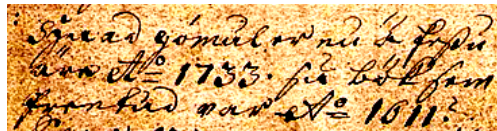 Svo ad gömul er nu á þessu
áre Aº 1733. sú bók sem
þrentud var Aº 1611.